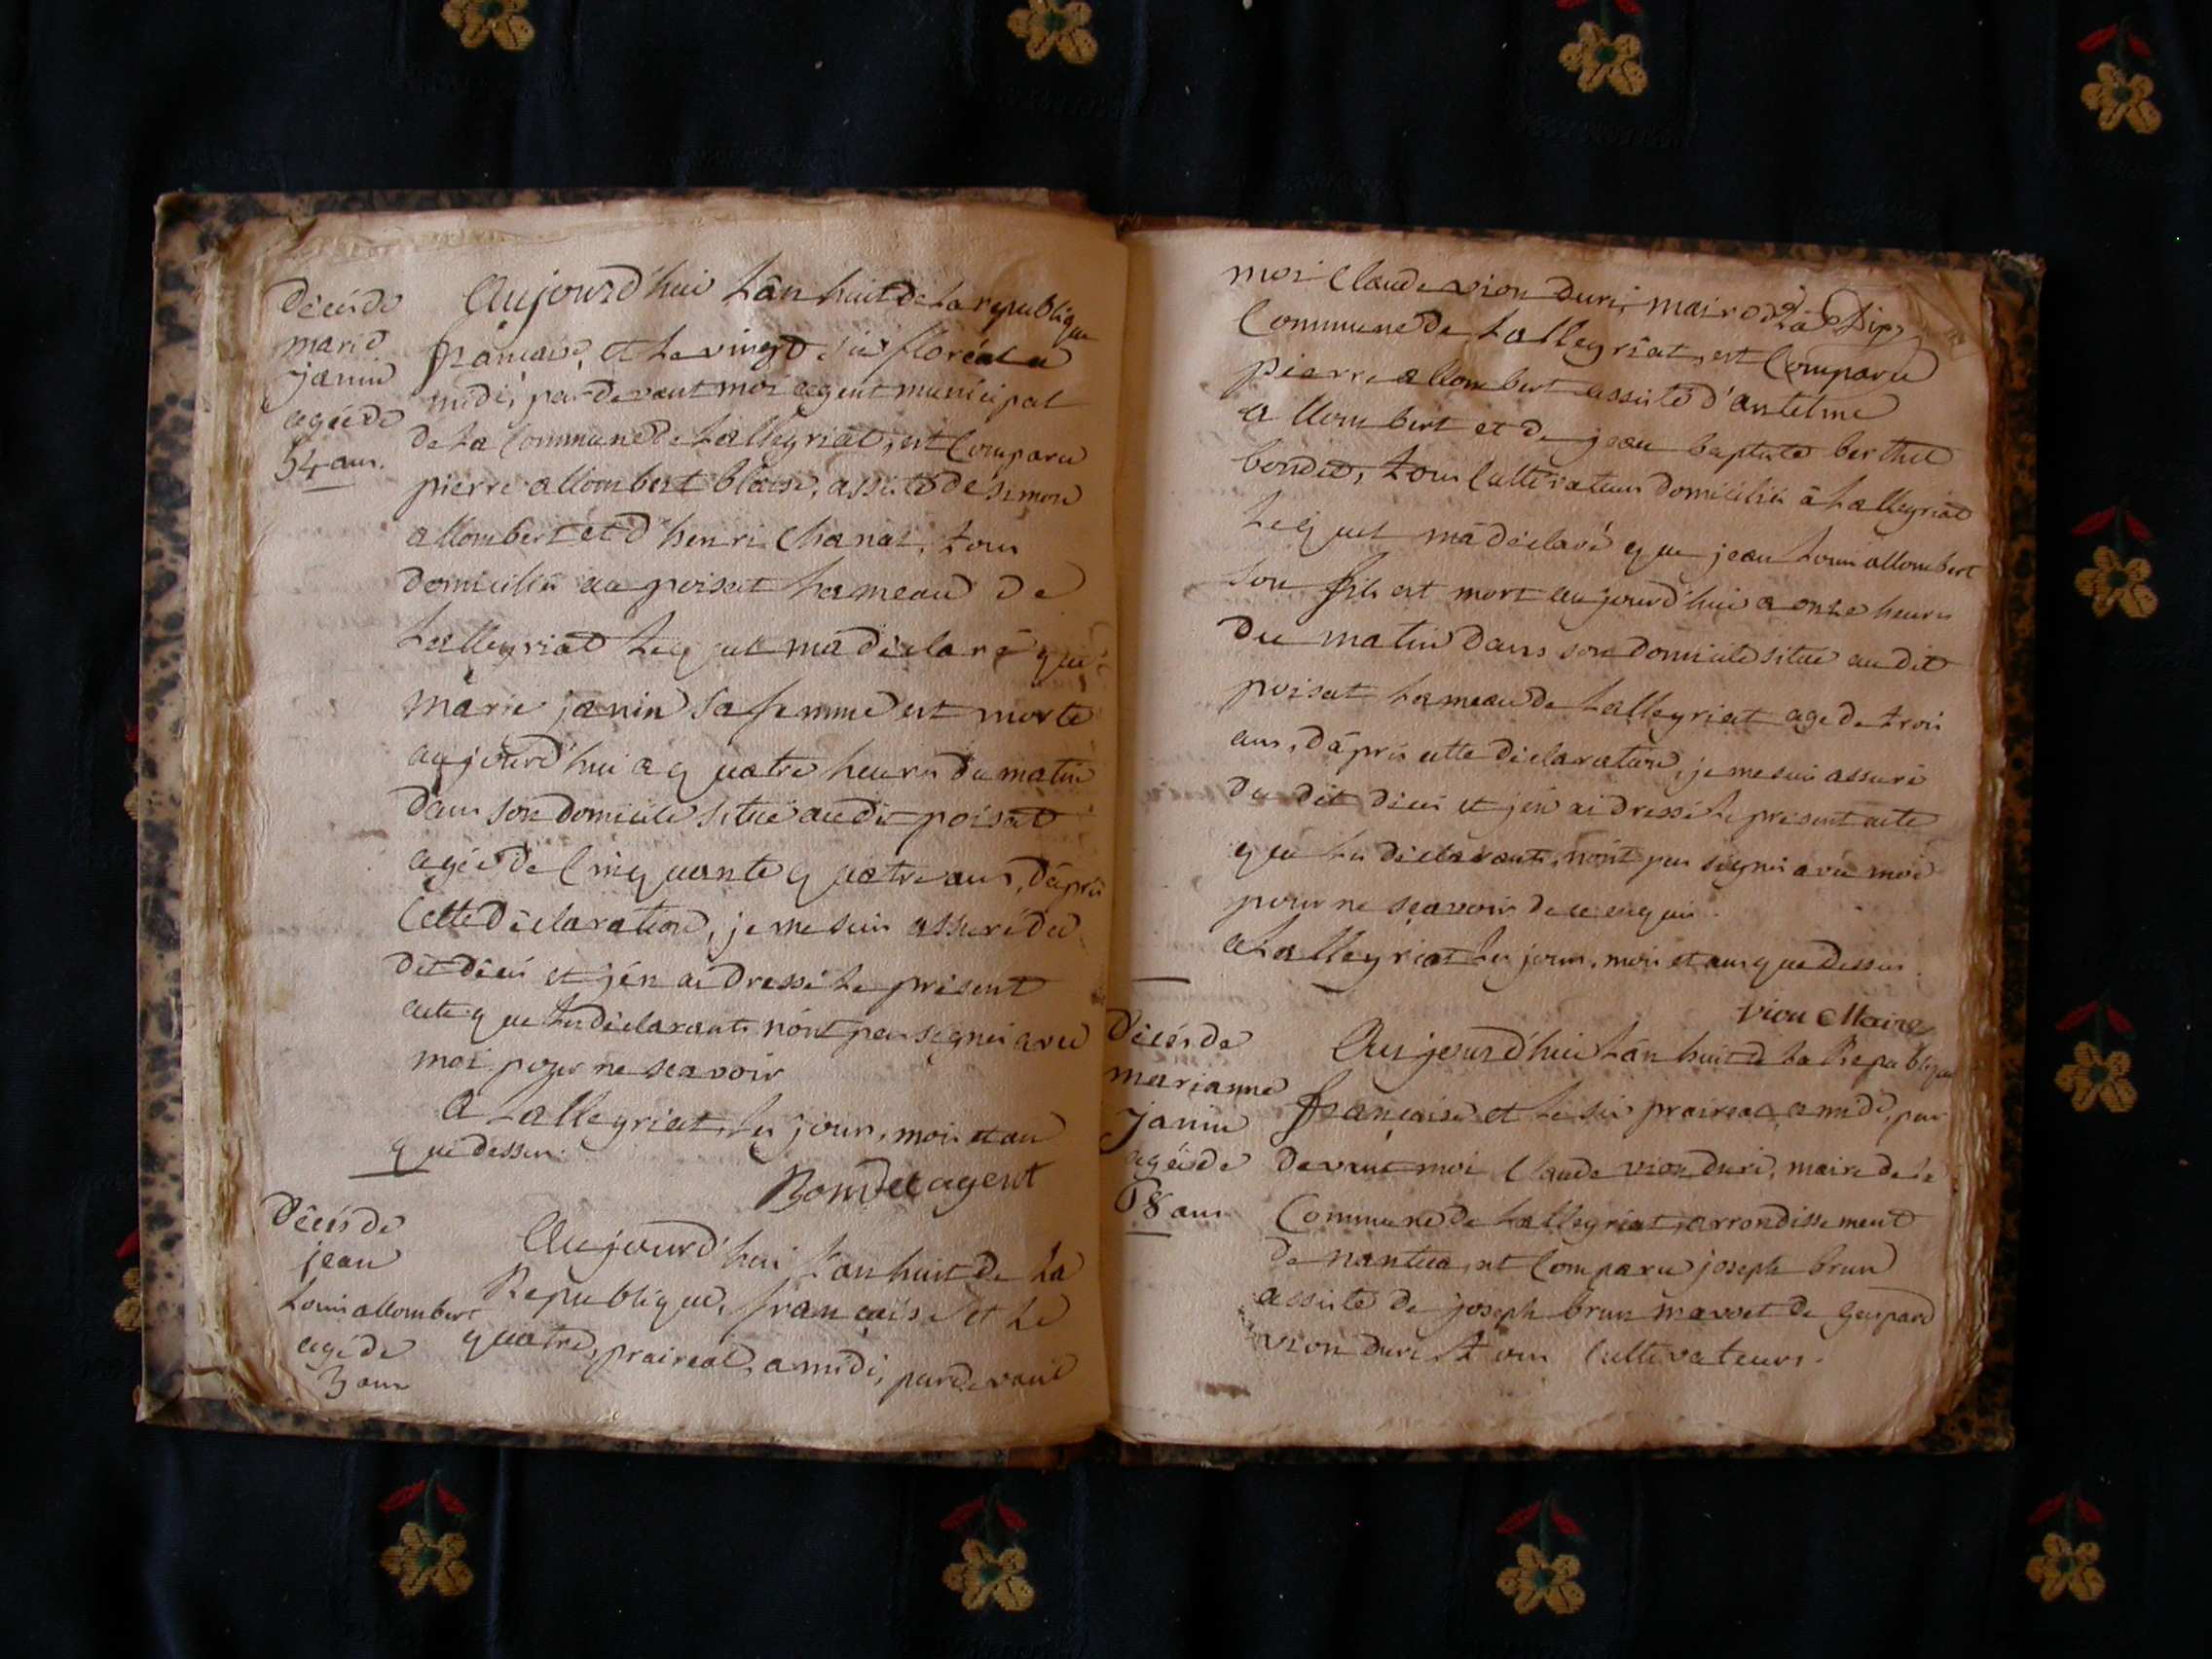 Décés de
marie
janin
agée de
54 ans.
Aujourd'hui L'an huit de La republique
française, et Le vingt six floréal a
midi, par devant moi agent municipal
de La Commune de Lalleyriat, est Comparu
pierre allombert blaise, assisté de simon
allombert et d'henri Chanal, tous
domiciliés au poisat hameau de
Lalleyriat Lequel m'a déclaré que
marie janin sa femme est morte
aujourd'hui a quatre heures du matin
dans son domicile situé audit poisat
agée de Cinquante quatre ans, d'après
Cette déclaration, je me suis assuré du
dit décés et j'en ai dressé Le présent
acte que Les déclarants n'ont pas signé avec
moi pour ne scavoir
A Lalleyriat, Les jour, mois et an
que dessus.
Bondet agent
Décés de
jean
Louis allombert
agé de
3 ans
Aujourd'hui L'an huit de La
Republique, française et Le
quatre, praireal, a midi, pardevant
moi Claude vion duri, maire de La
Commune de Lalleyriat, est Comparu
pierre allombert assisté d'antelme
allombert et de jean baptiste berthet
bondet, tous Cultivateurs domiciliés à Lalleyriat
Lequel m'a déclaré que jean Louis allombert
son fils est mort aujourd'hui a onze heures
du matin dans son domicile situé au dit
poisat hameau de Lalleyriat agé de trois
ans, d'après cette déclaration, je me suis assuré
du dit décés et j'en ai dressé Le présent acte
que Les déclarants, n'ont pas signé avec moi
pour ne scavoir de ce enquis.
a Lalleyriat Les jour, mois et an que dessus.
Vion Maire
Décés de
marianne
Janin
agée de
68 ans
Aujourd'hui L'an huit de La Republique
française et Le six praireal, a midi, par
devant moi Claude vion duri, maire de La
Commune de Lalleyriat, arrondissement
de nantua, est Comparu joseph brun
assisté de joseph brun et de Gaspard
vion duri tous Cultivateurs.